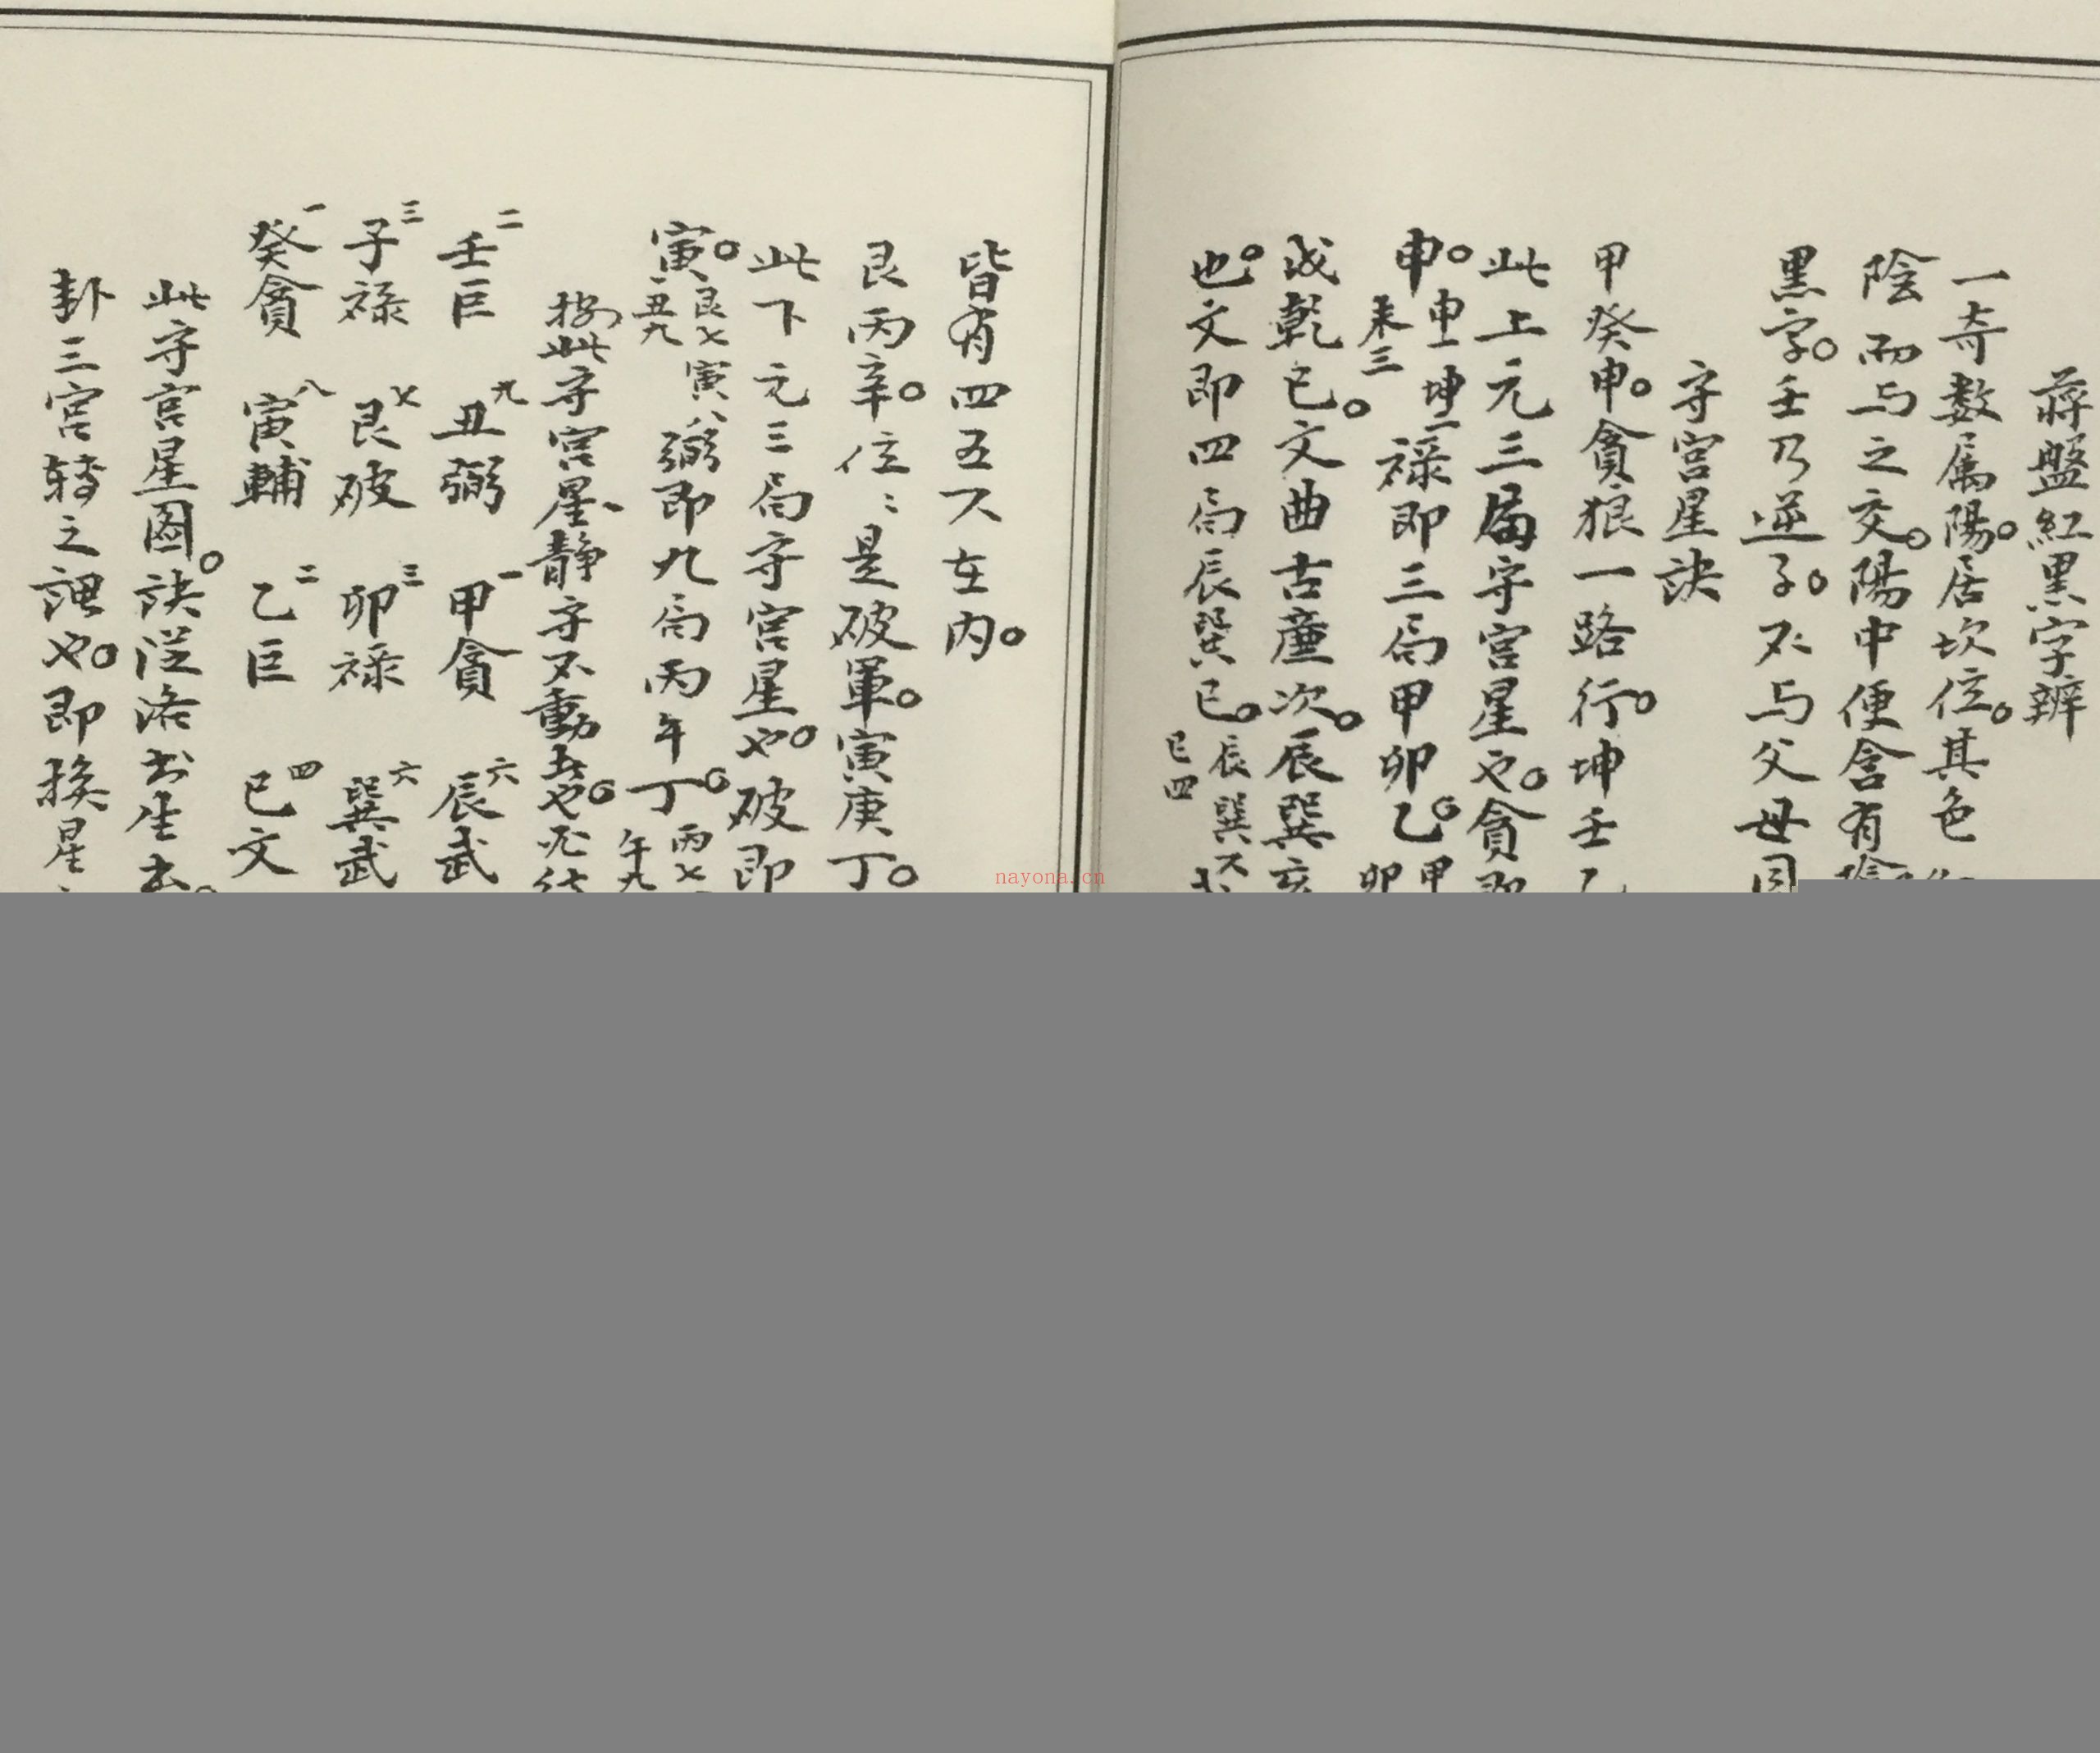 蒋盤紅黒字辨
一奇数属陽。居坎位。其色
陰而与之交。陽中便含有陰
黒字。壬乃逆子。不与父母同
守宫星訣
甲癸申。貪狼一路行。坤壬乙
此上元三局守宫星也。貪即
申。申一坤二未三禄即三局甲卯乙。甲卯
戌乾巳。文曲古董次。辰巽亥
也。文即四局辰巽巳。辰巽六巳四
皆有四五六在内。
艮丙辛。位:是破軍。寅庚丁。
此下元三局守宫星也。破即
寅。艮七寅八丑九弼即九局丙午丁。丙七午九
按此守宫星静守不動者也。
二壬巨 九丑弼 一甲貪 六辰武
三子禄 七艮破 三卯禄 六巽武
一癸貪 八寅輔 二乙巨 四巳文
此守宫星图。訣従洛书生出。
卦三宫轉之謂也。即挨星
nayona.cn